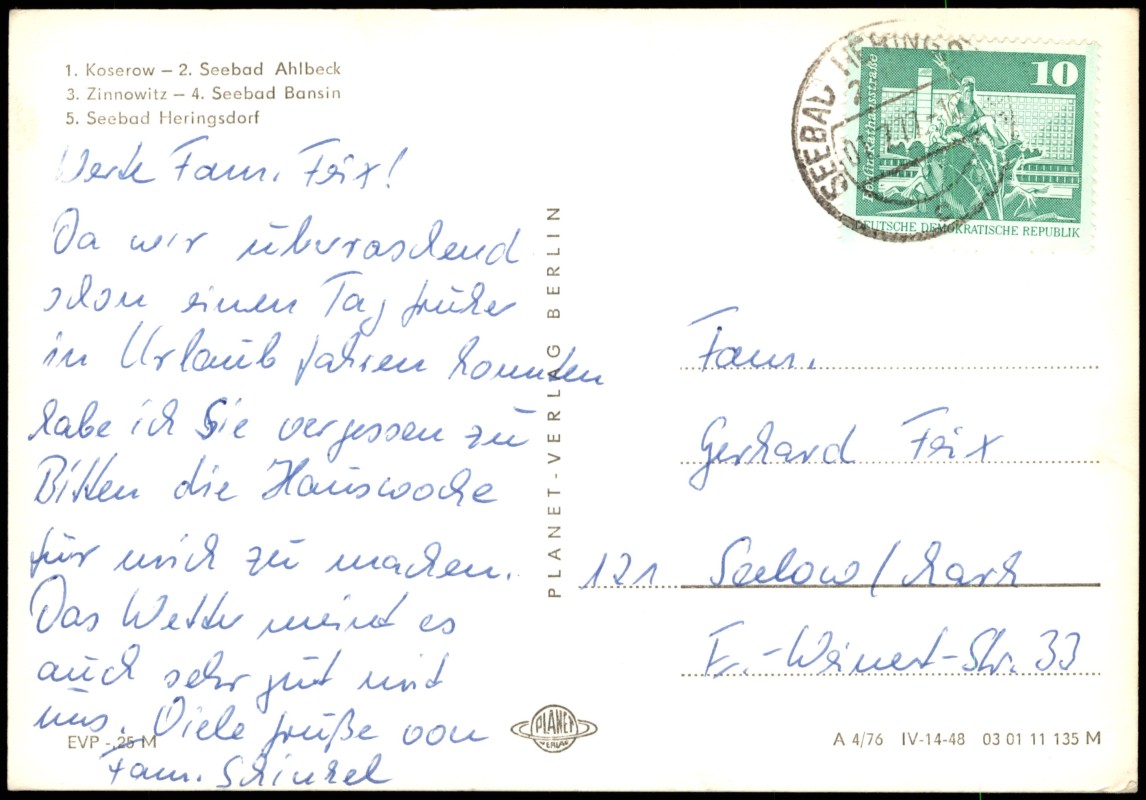 1. Koserow – 2. Seebad Ahlbeck
3. Zinnowitz – 4. Seebad Bansin
5. Seebad Heringsdorf
Werte Fam. Frix!
Da wir überraschend
schon einen Tag früher
in Urlaub fahren konnten
habe ich Sie vergessen zu
Bitten die Hauswoche
für mich zu machen.
Das Wetter meint es
auch sehr gut mit
uns. Viele grüße von
Fam. Schinkel
EVP -,25 M
PLANET-VERLAG BERLIN
PLANET
VERLAG
SEEBAD HERINGSD
10
DEUTSCHE DEMOKRATISCHE REPUBLIK
Fam.
Gerhard Frix
121 Seelow/Mark
E.-Weinert-Str. 33
A 4/76 IV-14-48 03 01 11 135 M